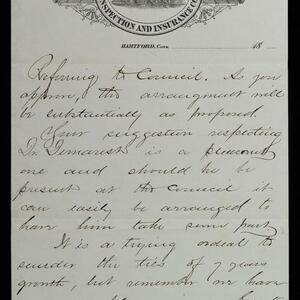 INSPECTION AND INSURANCE CO.
HARTFORD, Conn. 18
Referring to Council. As you
approve, the arrangment will
be substantially as proposed.
Your suggestion respecting
Dr. Demarest is a pleasant
one and should he be
present at the Council it
can easily be arranged to
have him take some part.
It is a trying ordeal to
sunder the ties of 7 years
growth, but remember we have